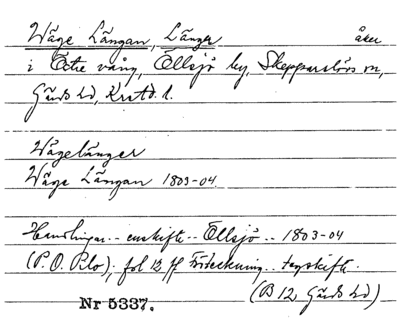 Wäge Längan, Länger åker
i Östre vång, Ollsjö by, Skepparslövs sn,
Gärds hd, Krstd. l.
Wägelänger
Wäge Längan 1803-04
Handlingar .. enskifte .. Ollsjö .. 1803-04
(P. O. Pilo); fol 12 ff Förteckning .. tegskifte.
(B 12, Gärds hd)
Nr 5337.